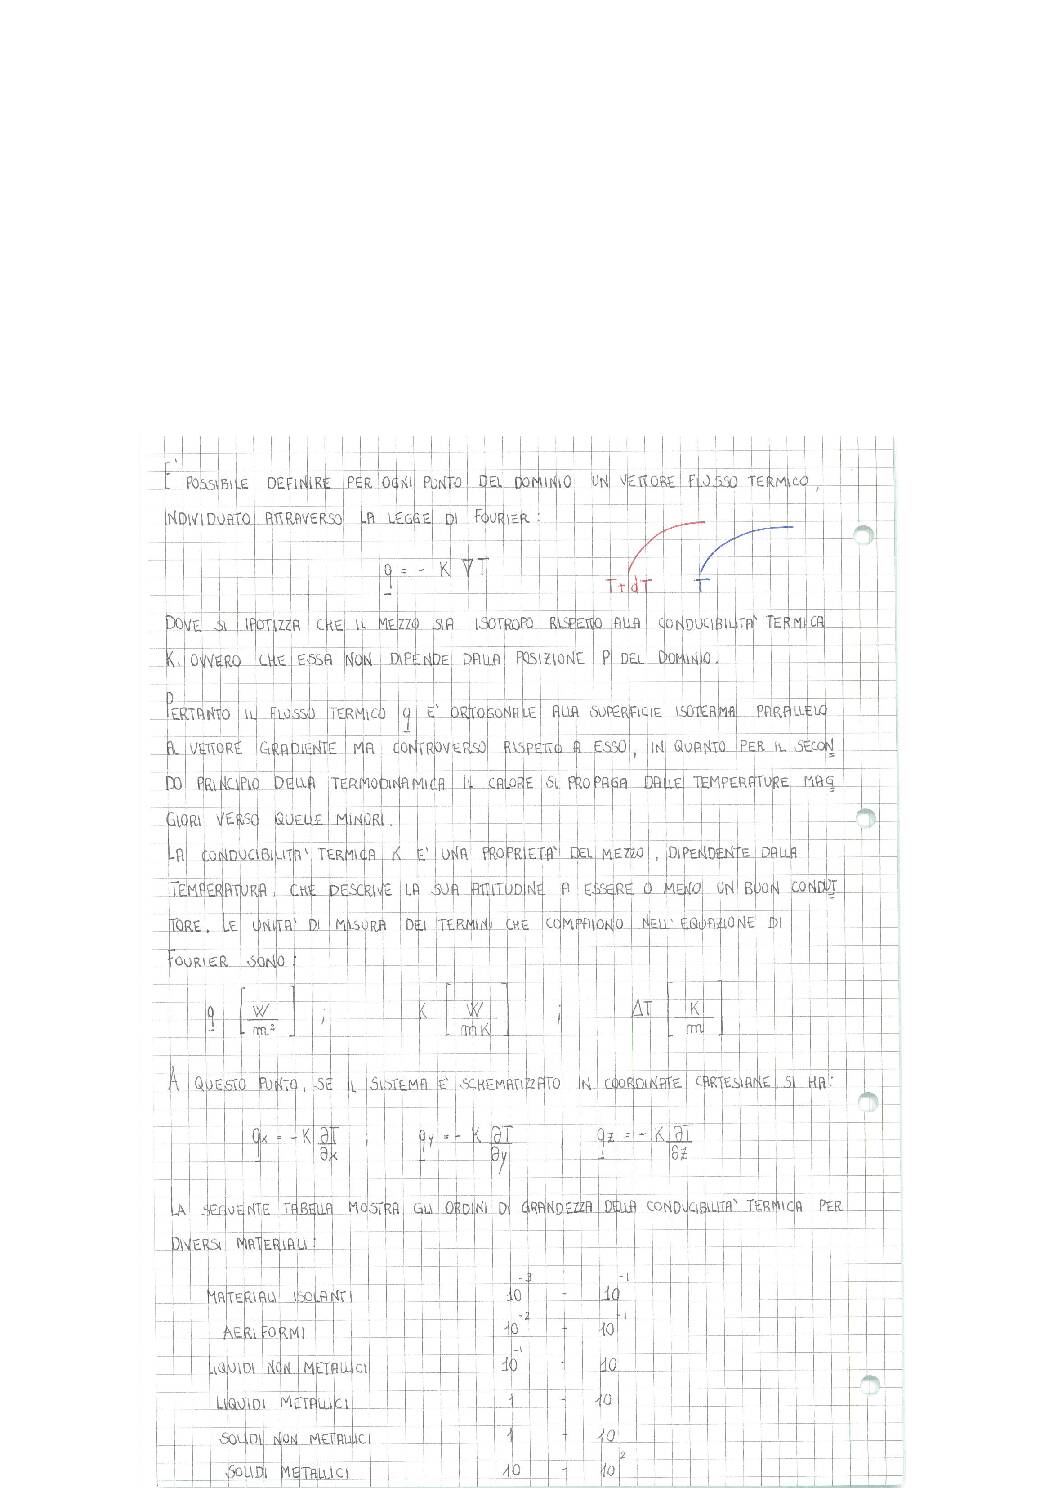 E' POSSIBILE DEFINIRE PER OGNI PUNTO DEL DOMINIO UN VETTORE FLUSSO TERMICO,
INDIVIDUATO ATTRAVERSO LA LEGGE DI FOURIER:
q = - K ∇T
T+dT T
DOVE SI IPOTIZZA CHE IL MEZZO SIA ISOTROPO RISPETTO ALLA CONDUCIBILITA' TERMICA
K, OVVERO CHE ESSA NON DIPENDE DALLA POSIZIONE P DEL DOMINIO.
PERTANTO IL FLUSSO TERMICO q E' ORTOGONALE ALLA SUPERFICIE ISOTERMA PARALLELO
AL VETTORE GRADIENTE MA CONTROVERSO RISPETTO A ESSO, IN QUANTO PER IL SECON
DO PRINCIPIO DELLA TERMODINAMICA IL CALORE SI PROPAGA DALLE TEMPERATURE MAG
GIORI VERSO QUELLE MINORI.
LA CONDUCIBILITA' TERMICA K E' UNA PROPRIETA' DEL MEZZO, DIPENDENTE DALLA
TEMPERATURA, CHE DESCRIVE LA SUA ATTITUDINE A ESSERE O MENO UN BUON CONDUT
TORE. LE UNITA' DI MISURA DEI TERMINI CHE COMPAIONO NELL'EQUAZIONE DI
FOURIER SONO:
q [W/m²] ; K [W/mK] ; ΔT [K/m]
A QUESTO PUNTO, SE IL SISTEMA E' SCHEMATIZZATO IN COORDINATE CARTESIANE SI HA:
qx = -K ∂T/∂x ; qy = - K ∂T/∂y qz = - K ∂T/∂z
LA SEGUENTE TABELLA MOSTRA GLI ORDINI DI GRANDEZZA DELLA CONDUCIBILITA' TERMICA PER
DIVERSI MATERIALI:
MATERIALI ISOLANTI 10⁻³ - 10⁻¹
AERIFORMI 10⁻² - 10⁻¹
LIQUIDI NON METALLICI 10⁻¹ - 10
LIQUIDI METALLICI 1 - 10
SOLIDI NON METALLICI 1 - 10
SOLIDI METALLICI 10 - 10²